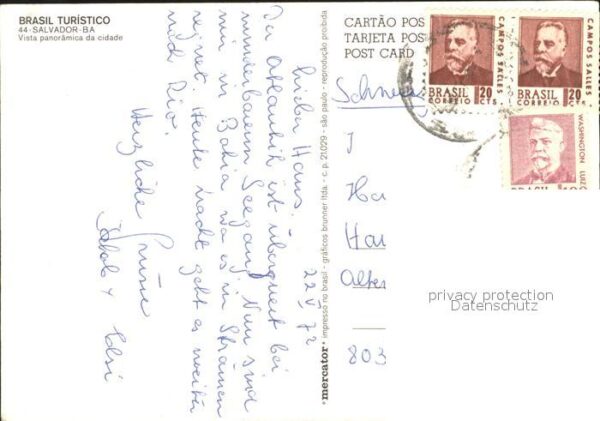 BRASIL TURÍSTICO
44 - SALVADOR - BA
Vista panorâmica da cidade
22 V 72
Lieber Hans!
Der Atlantik ist überquert bei
wunderbarem Seegang. Nun sind
wir in Bahia wo es in Strömen
regnet. Heute Nacht geht es weiter
nach Rio.
Herzliche Grüsse
+ Elsi
mercator · impresso no brasil - gráficos brunner ltda. - c. p. 21029 - são paulo - reprodução proibida
CARTÃO POS
TARJETA POS
POST CARD
Schweiz
Ha
Han
Alter
803
CAMPOS SALLES
BRASIL 20
CORREIO CTS
CAMPOS SALLES
BRASIL 20
CORREIO CTS
WASHINGTON LUIZ
BRASIL
privacy protection
Datenschutz